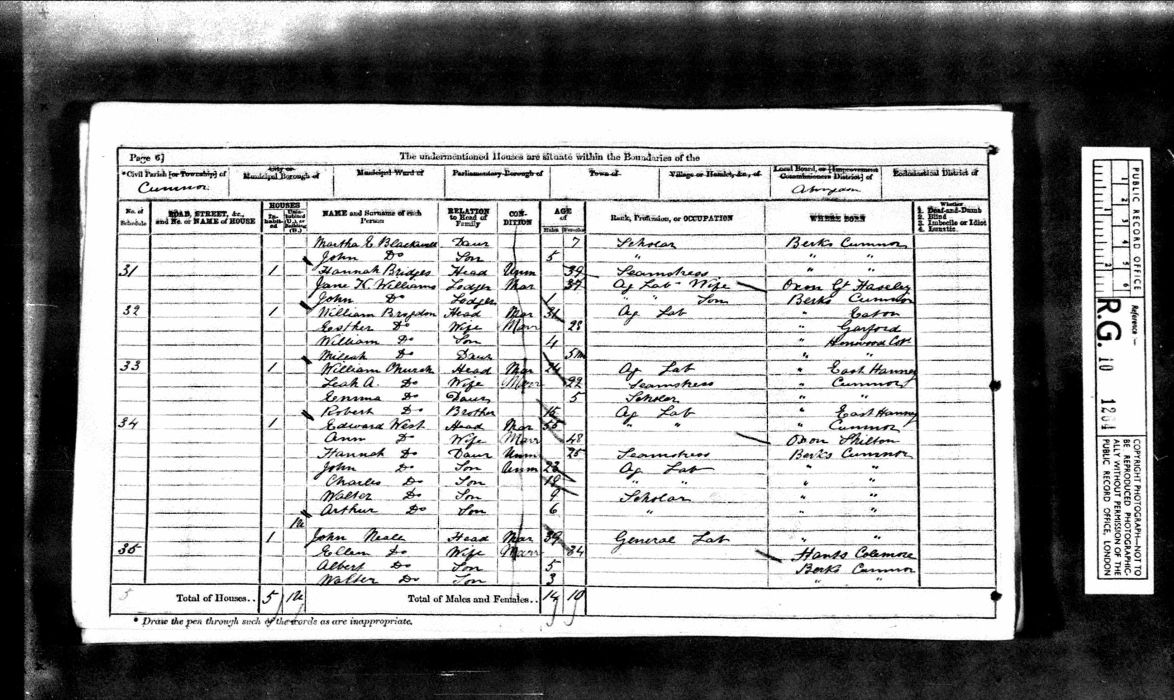 Page 6]
The undermentioned Houses are situate within the Boundaries of the
*Civil Parish [or Township] of City or Municipal Borough of Municipal Ward of Parliamentary Borough of Town of Village or Hamlet, &c., of Local Board, or [Improvement Commissioners District] of Ecclesiastical District of
Cumnor Abingdon
No. of Schedule ROAD, STREET, &c., and No. or NAME of HOUSE HOUSES Inhabited Uninhabited (U.), or Building (B.) NAME and Surname of each Person RELATION to Head of Family CONDITION AGE of Males Females Rank, Profession, or OCCUPATION WHERE BORN Whether 1. Deaf-and-Dumb 2. Blind 3. Imbecile or Idiot 4. Lunatic
Martha E Blackwell Daur 7 Scholar Berks Cumnor
John Do Son 5 " " "
31 1 Hannah Bridges Head Unm 39 Seamstress " "
Jane K Williams Lodger Mar 37 Ag Lab Wife Oxon Gt Haseley
John Do Lodger 1 " " Son Berks Cumnor
32 1 William Brogdon Head Mar 31 Ag Lab " Eaton
Esther Do Wife Marr 28 " Garford
William Do Son 4 "
Do Daur 5m " "
33 1 William Church Head Mar 24 Ag Lab " East Hanney
Leah A. Do Wife Marr 22 Seamstress " Cumnor
Emma Do Daur 5 Scholar " "
Robert Do Brother 15 Ag Lab " East Hanney
34 1 Edward West Head Mar 55 " " " Cumnor
Ann Do Wife Marr 48 Oxon Shilton
Hannah Do Daur Unm 25 Seamstress Berks Cumnor
John Do Son Unm 23 Ag Lab " "
Charles Do Son 18 " " " "
Walter Do Son 9 Scholar " "
Arthur Do Son 6 " " "
1u
1 John Neale Head Mar 39 General Lab " "
35 Ellen Do Wife Marr 34 Hants Colemore
Albert Do Son 5 Berks Cumnor
Walter Do Son 3 " "
5 Total of Houses.. 5 1u Total of Males and Females.. 14 10
* Draw the pen through such of the words as are inappropriate.
PUBLIC RECORD OFFICE
1 2 3 4 5 6
1 2
Reference:—
R.G. 10 1264
COPYRIGHT PHOTOGRAPH—NOT TO BE REPRODUCED PHOTOGRAPHICALLY WITHOUT PERMISSION OF THE PUBLIC RECORD OFFICE, LONDON